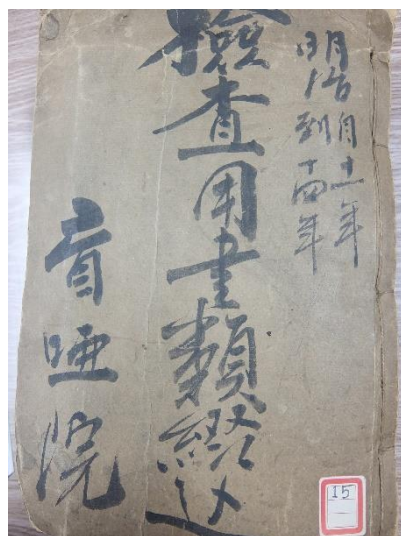 明治
自十一年
到十四年
檢査用書類綴込
盲唖院
15